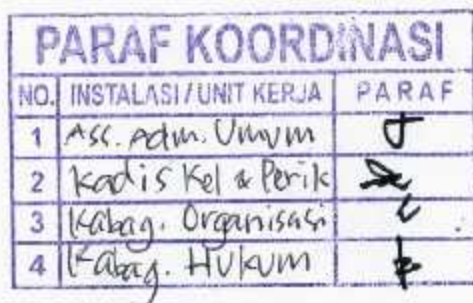 PARAF KOORDINASI
NO. INSTALASI / UNIT KERJA PARAF
1 Ass. Adm. Umum
2 Kadis Kel & Perik
3 Kabag. Organisasi
4 Kabag. Hukum